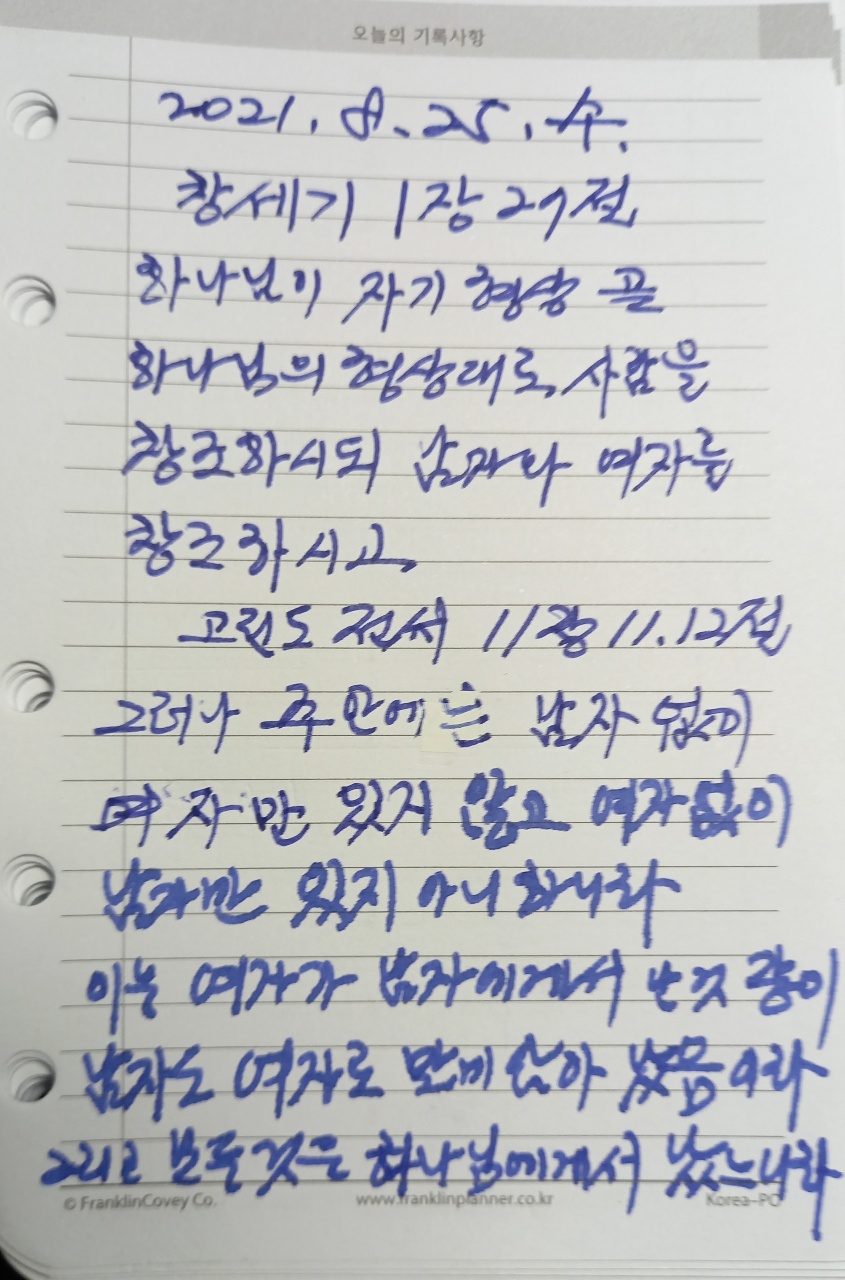 오늘의 기록사항
2021. 8. 25. 수.
창세기 1장 27절
하나님이 자기 형상 곧
하나님의 형상대로 사람을
창조하시되 남자와 여자를
창조하시고
고린도 전서 11장 11.12절
그러나 주 안에는 남자 없이
여자만 있지 않고 여자 없이
남자만 있지 아니하니라
이는 여자가 남자에게서 난것 같이
남자도 여자로 말미암아 났음이라
그리고 모든것은 하나님에게서 났느니라
© FranklinCovey Co. www.franklinplanner.co.kr Korea-PO